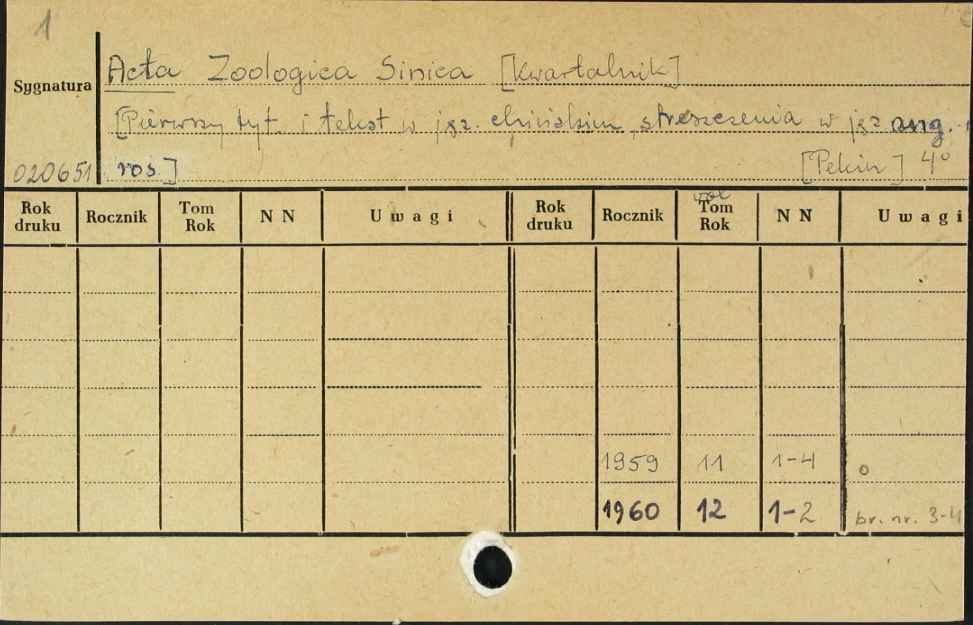 1
Sygnatura
Acta Zoologica Sinica [Kwartalnik]
[Pierwszy tyt. i tekst w jęz. chińskim, streszczenia w jęz ang. i
020651 ros.] [Pekin] 4º
Rok druku Rocznik Tom Rok N N Uwagi Rok druku Rocznik vol Tom Rok N N Uwagi
1959 11 1-4 o
1960 12 1-2 br. nr. 3-4